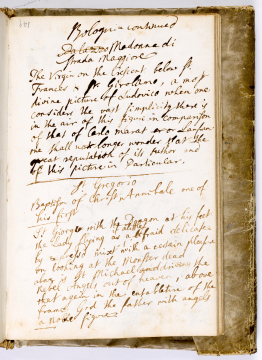 Bologna continued
Palazzo Madonna di
Strada Maggiore
The Virgin on the Crescent below St
Frances & St Girolamo, a most
divine picture of Ludovico when one
considers the vast simplicity there is
in the air of this figure in comparison
of that of Carlo marat or
one shall no longer wonder that the
great reputation of its Author and
of this picture in Particular.
St Gregorio
Baptism of Christ Annibale one of
his first
St George with the Dragon at his foot
the Lady flying as afraid delicate
by mixt with a certain pleasure
on looking at the Monster dead
above is St Michael driving the
Rebel Angels out of heaven, above
that again in the entablature of the
frame is God the father with angels
a noble figure